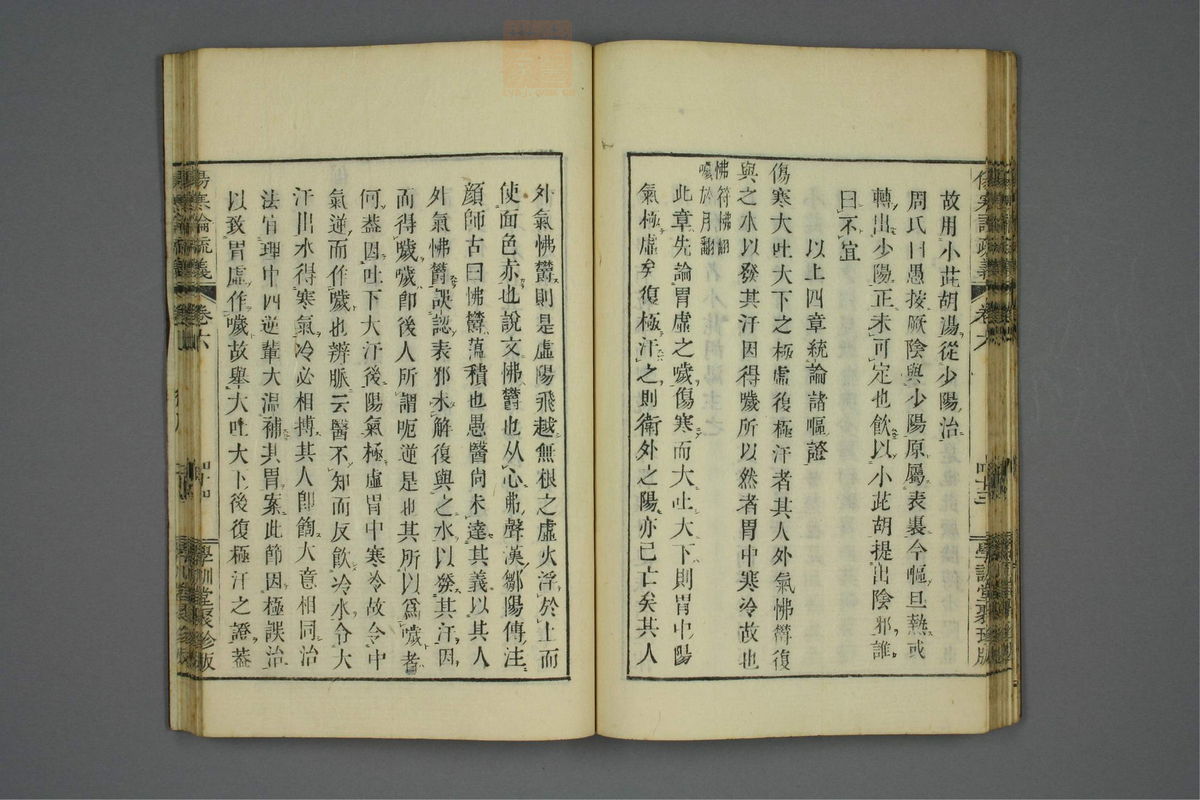 故用小茈胡湯從少陽治
周氏曰愚按厥陰與少陽原屬表裏今嘔且熱或
轉出少陽正未可定也飲以小茈胡提出陰邪誰
曰不宜
以上四章統論諸嘔證
傷寒大吐大下之極虛復極汗者其人外氣怫鬱復
與之水以發其汗因得噦所以然者胃中寒冷故也
怫符弗翻
噦於月翻
此章先論胃虛之噦傷寒而大吐大下則胃中陽
氣極虛矣復極汗之則衛外之陽亦已亡矣其人
外氣怫鬱則是虛陽飛越無根之虛火浮於上而
使面色赤也說文怫鬱也从心弗聲漢鄒陽傳注
顔師古曰怫鬱薀積也愚醫尙未達其義以其人
外氣怫鬱誤認表邪未解復與之水以發其汗因
而得噦噦卽後人所謂呃逆是也其所以爲噦者
何葢因吐下大汗後陽氣極虛胃中寒冷故令中
氣逆而作噦也辨脈云醫不知而反飮冷水令大
汗出水得寒氣冷必相搏其人卽䭇大意相同治
法宜理中四逆輩大温補其胃案此節因極誤治
以致胃虛作噦故舉大吐大下後復極汗之證葢
傷寒論疏義 卷六 四十四 學訓堂聚珍版